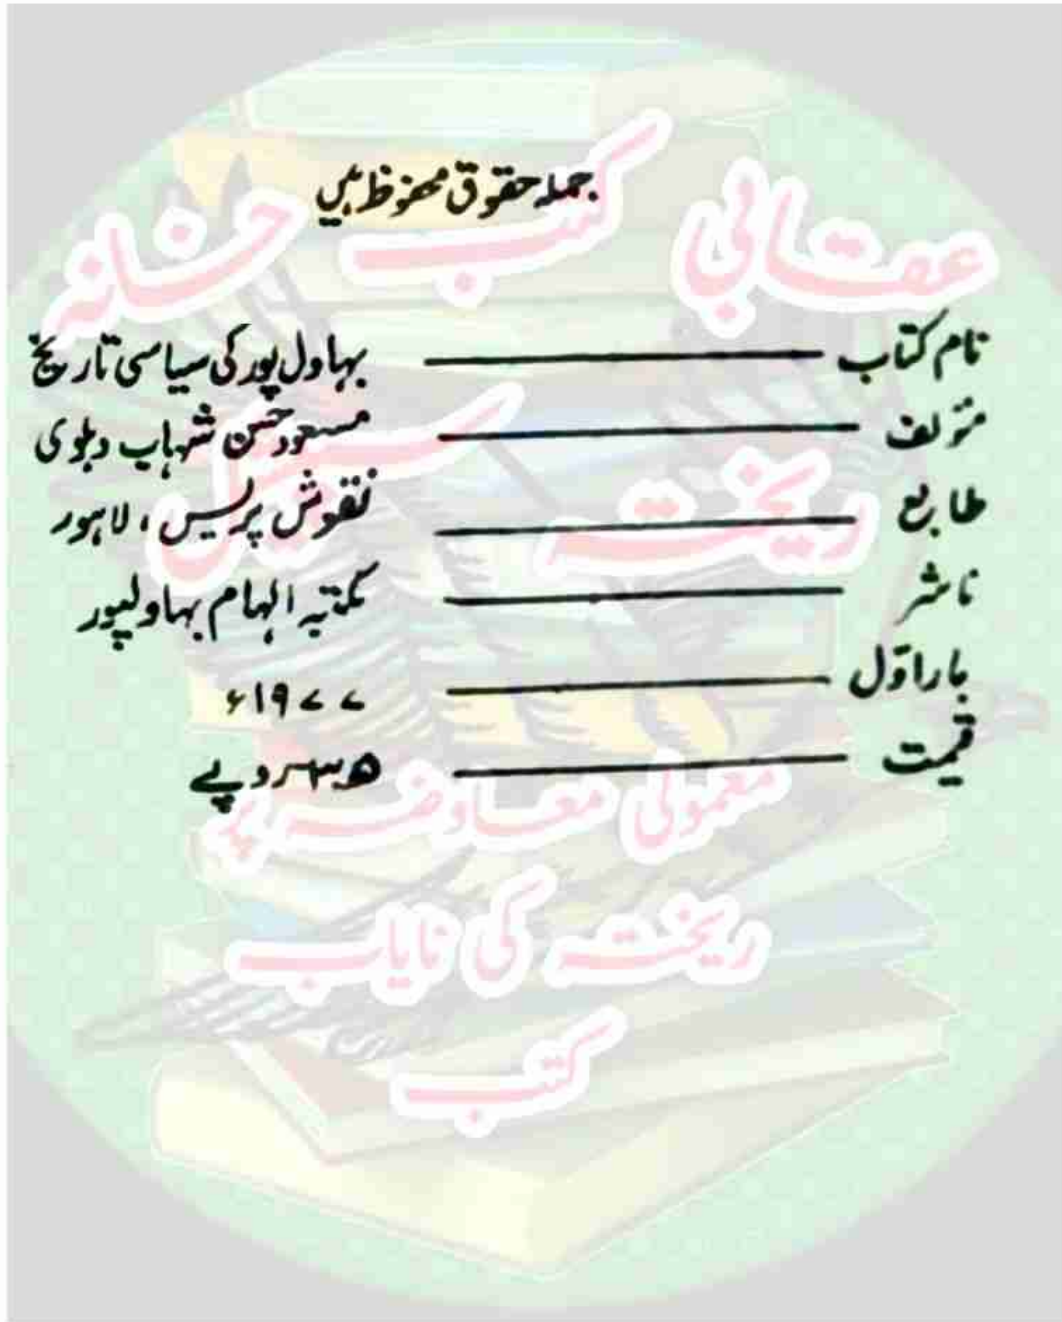 جملہ حقوق محفوظ ہیں
عقابی کتب خانہ
نام کتاب ——— بہاول پور کی سیاسی تاریخ
مؤلف ——— مسعود حسن شہاب دہلوی
طابع ——— نقوش پریس ، لاہور
ریختہ
ناشر ——— مکتبہ الہام بہاولپور
بار اوّل ——— ۱۹۷۷ء
قیمت ——— ۳۵ روپے
معمولی معاوضہ پر
ریختہ کی نایاب
کتب